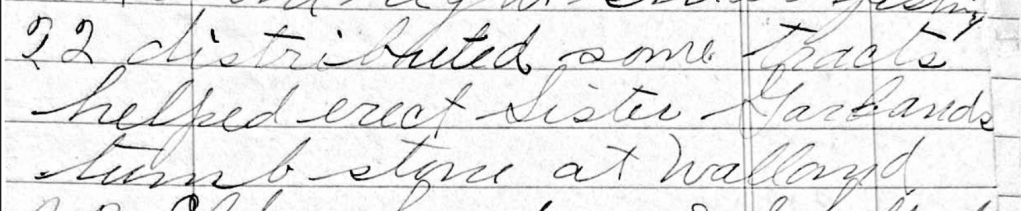 22 distributed some tracts
helped erect Sister Garlands
tumb stone at Walland